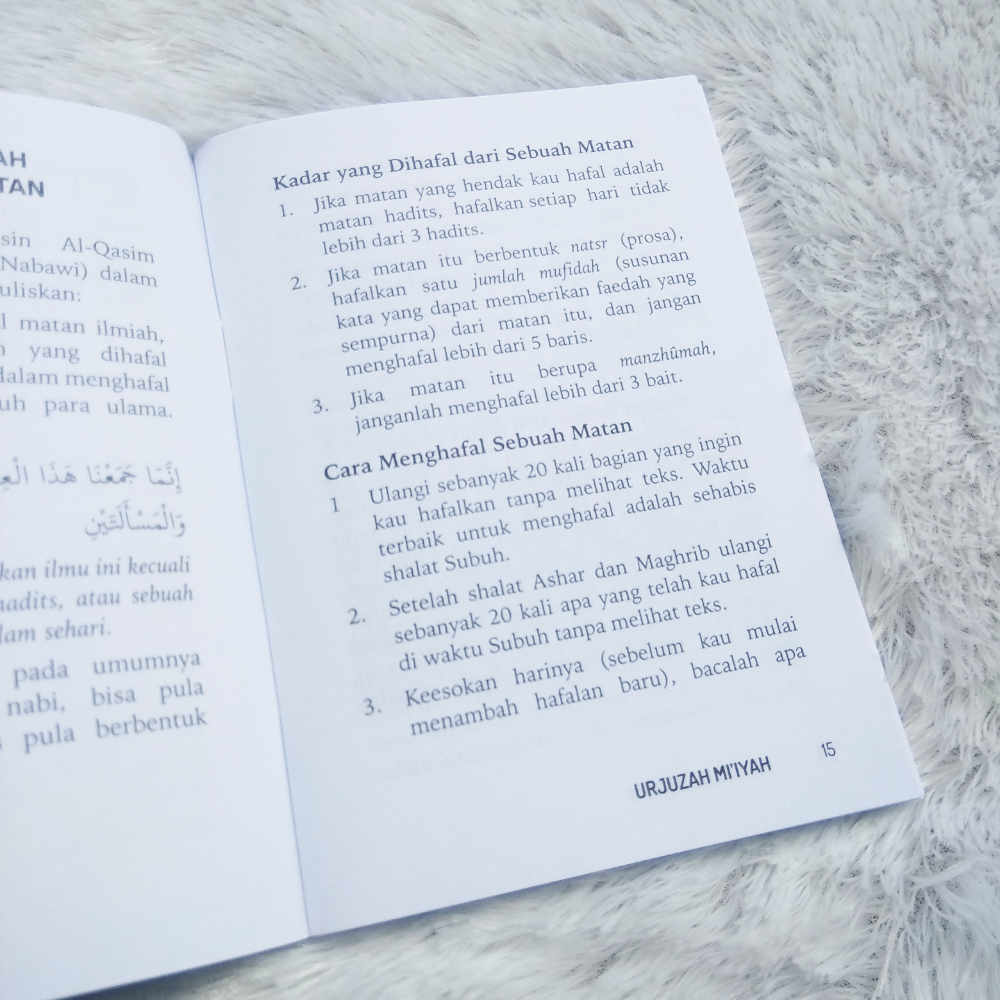 AH
TAN
sin Al-Qasim
Nabawi) dalam
uliskan:
l matan ilmiah,
yang dihafal
dalam menghafal
uh para ulama.
إِنَّمَا جَمَعْنَا هَذَا
وَالْمَسْأَلَتَيْنِ
kan ilmu ini kecuali
hadits, atau sebuah
lam sehari.
pada umumnya
nabi, bisa pula
pula berbentuk
Kadar yang Dihafal dari Sebuah Matan
1. Jika matan yang hendak kau hafal adalah
matan hadits, hafalkan setiap hari tidak
lebih dari 3 hadits.
2. Jika matan itu berbentuk natsr (prosa),
hafalkan satu jumlah mufidah (susunan
kata yang dapat memberikan faedah yang
sempurna) dari matan itu, dan jangan
menghafal lebih dari 5 baris.
3. Jika matan itu berupa manzhûmah,
janganlah menghafal lebih dari 3 bait.
Cara Menghafal Sebuah Matan
1 Ulangi sebanyak 20 kali bagian yang ingin
kau hafalkan tanpa melihat teks. Waktu
terbaik untuk menghafal adalah sehabis
shalat Subuh.
2. Setelah shalat Ashar dan Maghrib ulangi
sebanyak 20 kali apa yang telah kau hafal
di waktu Subuh tanpa melihat teks.
3. Keesokan harinya (sebelum kau mulai
menambah hafalan baru), bacalah apa
URJUZAH MI'IYAH 15